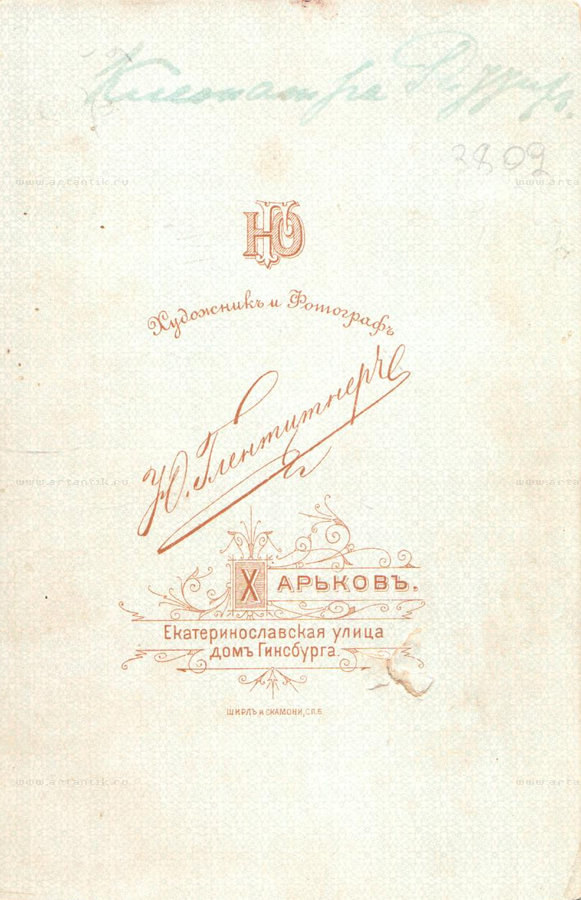 Клеопатра
3809
Художникъ и Фотографъ
Ю. Глентитнеръ
ХАРЬКОВЪ.
Екатеринославская улица
домъ Гинсбурга.
ШИРЛЪ и СКАМОНИ, С.П.Б.
www.artantik.ru